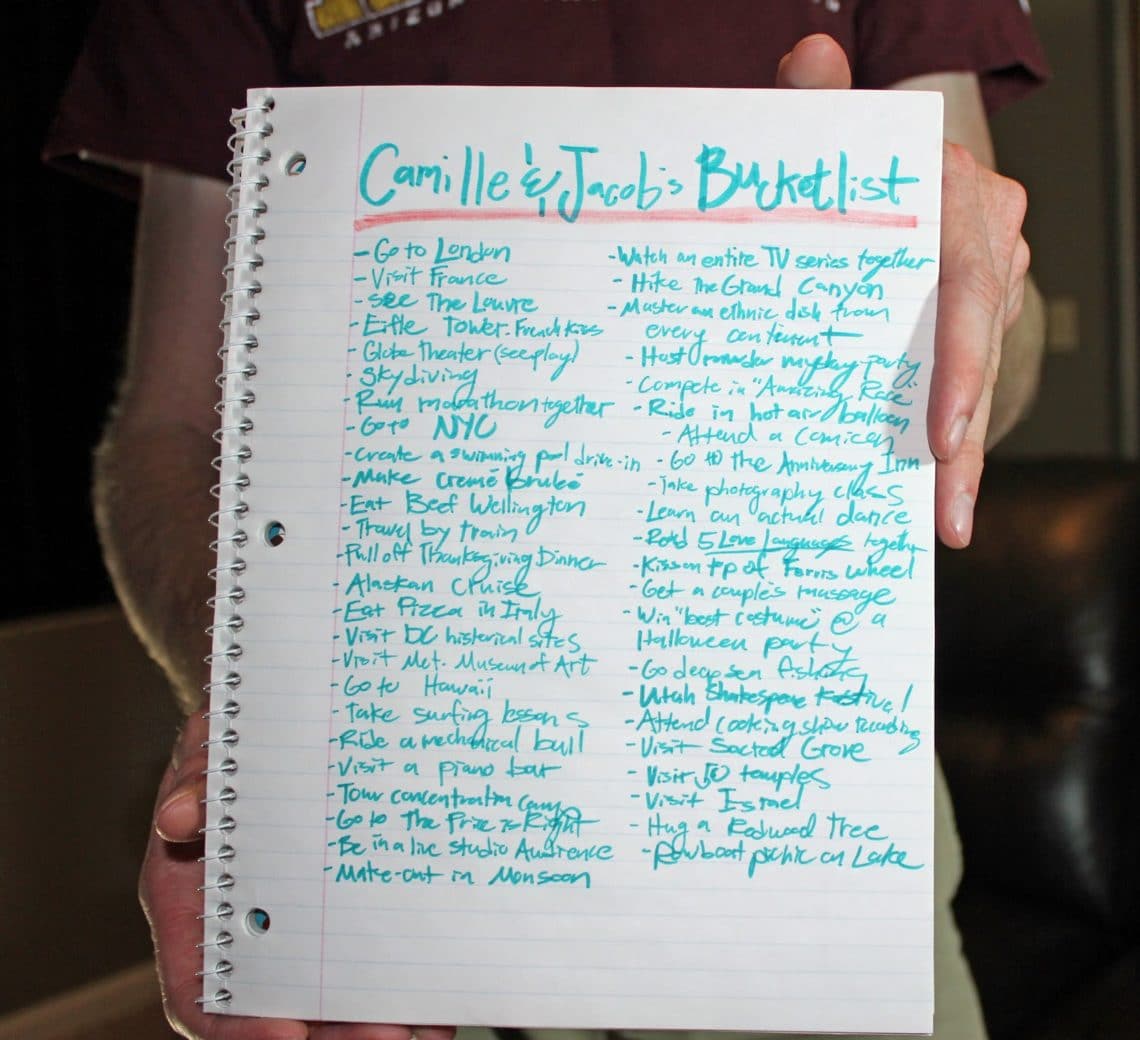 ARIZON
Camille & Jacob's Bucketlist
- Go to London
- Visit France
- See The Louvre
- Eifle Tower - French Kiss
- Globe Theater (see play)
- Skydiving
- Run marathon together
- Go to NYC
- Create a swimming pool drive-in
- Make Cremé Brulé
- Eat Beef Wellington
- Travel by train
- Pull off Thanksgiving Dinner
- Alaskan Cruise
- Eat Pizza in Italy
- Visit DC historical sites
- Visit Met. Museum of Art
- Go to Hawaii
- Take surfing lessons
- Ride a mechanical bull
- Visit a piano bar
- Tour concentration camp
- Go to The Price is Right
- Be in a live studio Audience
- Make-out in Monsoon
- Watch an entire TV series together
- Hike The Grand Canyon
- Master an ethnic dish from
every continent
- Host murder mystery party
- Compete in "Amazing Race"
- Ride in hot air balloon
- Attend a Comicon
- Go to the Anniversary Inn
- Take photography class
- Learn an actual dance
- Read 5 Love Languages together
- Kiss on top of Ferris wheel
- Get a couple's massage
- Win "best costume" @ a
Halloween party
- Go deep sea fishing
- Utah Shakespeare Festival
- Attend cooking show recording
- Visit Sacred Grove
- Visit 50 temples
- Visit Israel
- Hug a Redwood Tree
- Rowboat picnic on Lake